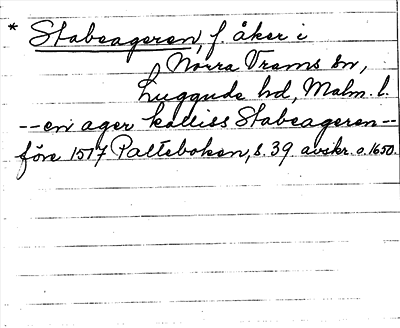 * Stabeageren, f. åker i
Norra Vrams sn,
Luggude hd, Malm. l.
--en ager kalliss Stabeageren--
före 1517 Palteboken, s. 39 avskr. o. 1650.